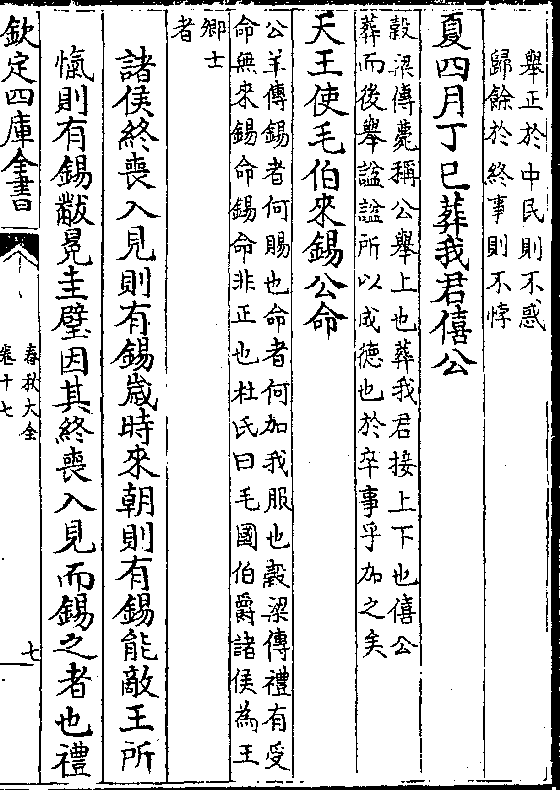 舉正於中民則不惑
歸餘於終事則不悖
夏四月丁巳葬我君僖公
穀梁傳薨稱公舉上也葬我君接上下也僖公
葬而後舉諡諡所以成德也於卒事乎加之矣
天王使毛伯來錫公命
公羊傳錫者何賜也命者何加我服也穀梁傳禮有受
命無來錫命錫命非正也杜氏曰毛國伯爵諸侯為王
卿士
者
諸侯終喪入見則有錫歲時來朝則有錫能敵王所
愾則有錫黻冕圭璧因其終喪入見而錫之者也禮
欽定四庫全書
春秋大全
卷十七
七